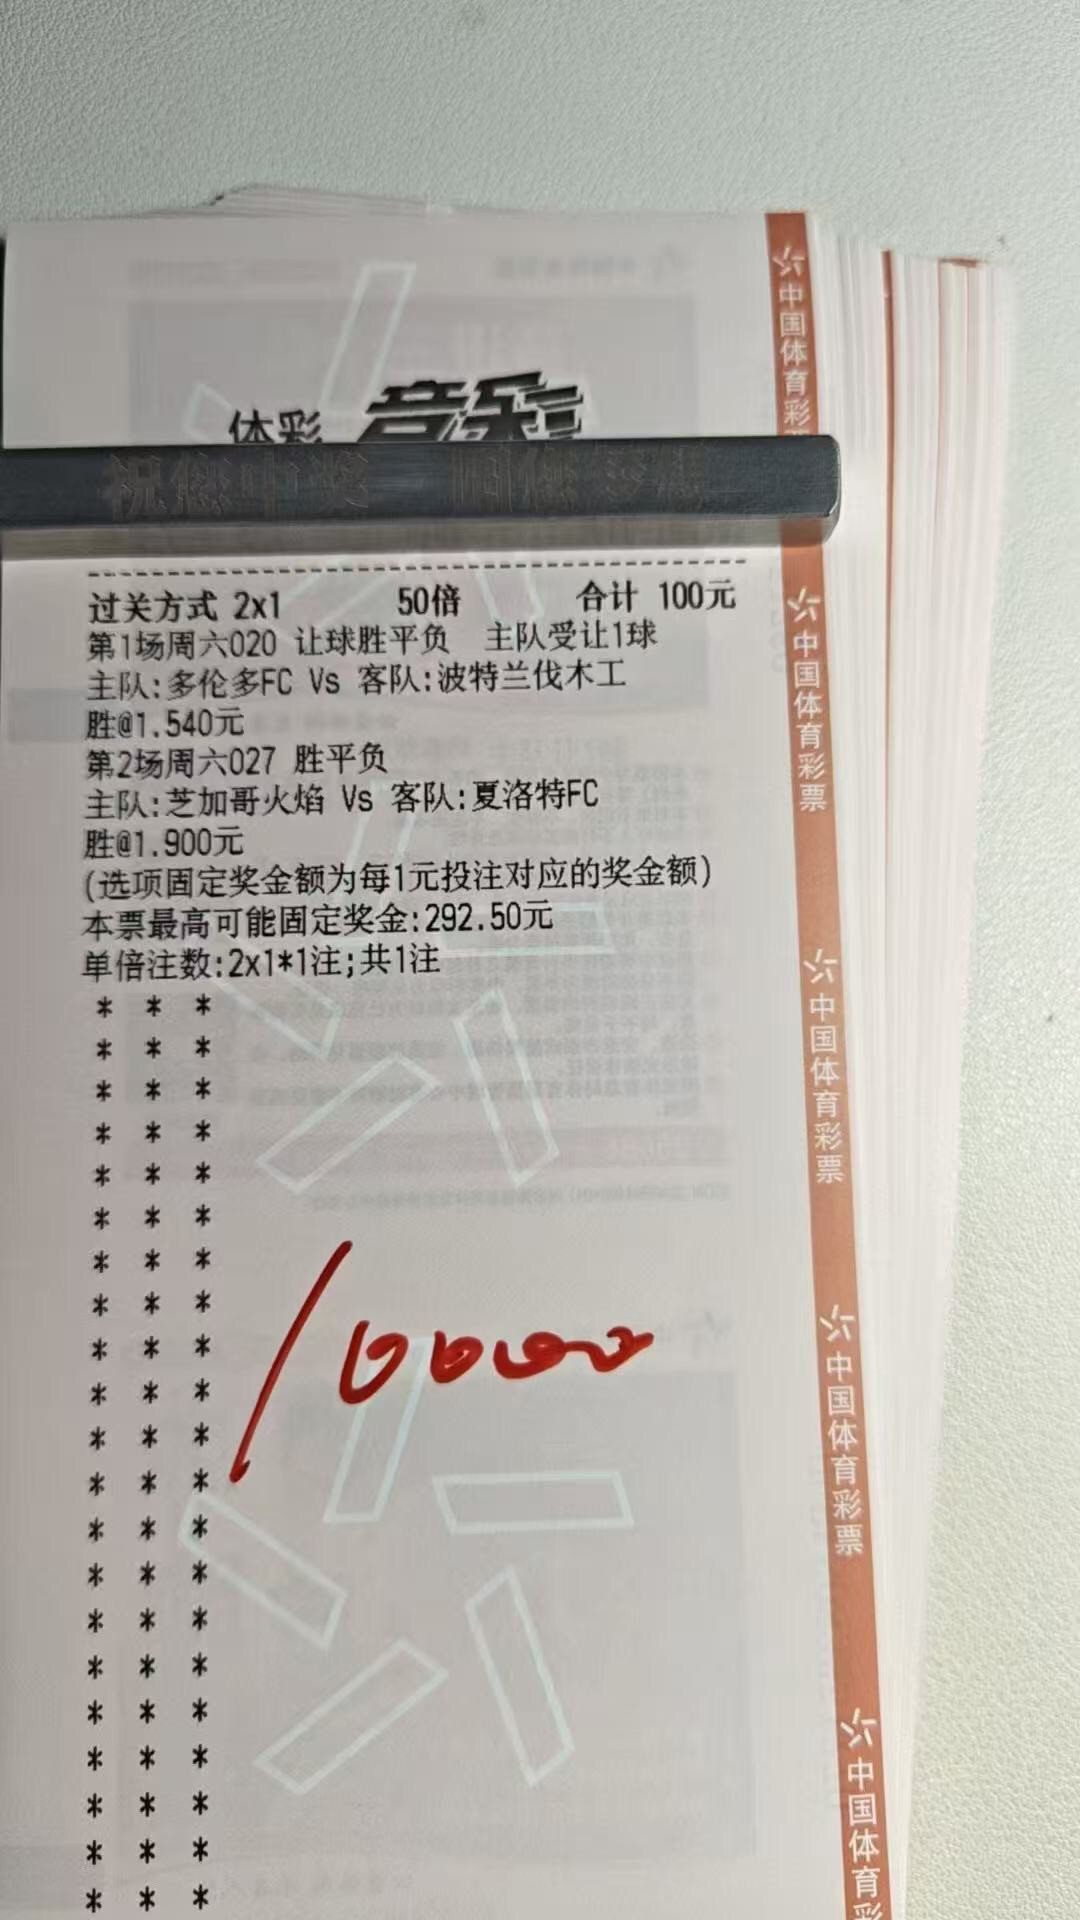 体彩 竞彩
祝您中奖
过关方式 2x1 50倍 合计 100元
第1场周六020 让球胜平负 主队受让1球
主队:多伦多FC Vs 客队:波特兰伐木工
胜@1.540元
第2场周六027 胜平负
主队:芝加哥火焰 Vs 客队:夏洛特FC
胜@1.900元
(选项固定奖金额为每1元投注对应的奖金额)
本票最高可能固定奖金:292.50元
单倍注数:2x1*1注;共1注
* * *
* * *
* * *
* * *
* * *
* * *
* * *
* * *
* * *
* * *
* * *
* * *
* * *
* * *
* * *
* * *
* * *
* * *
* * *
* * *
* * *
中国体育彩票
中国体育彩票
中国体育彩票
中国体育彩票
中国体育彩